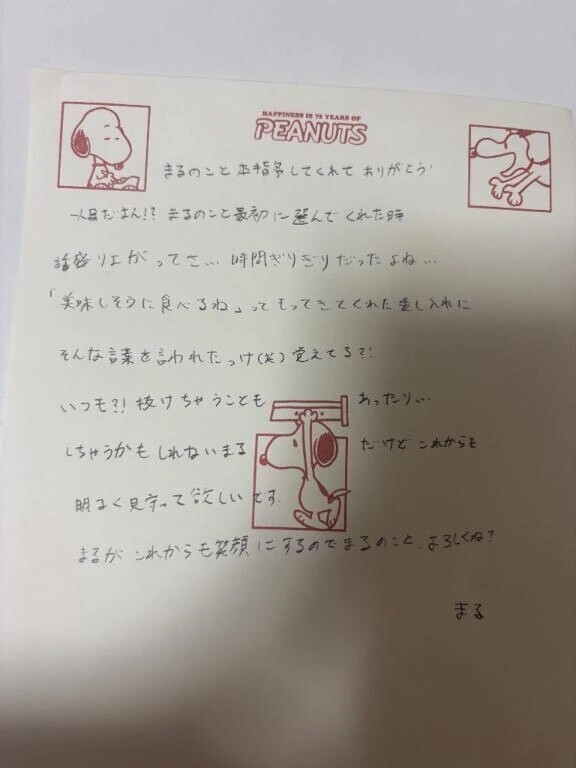 HAPPINESS IS 75 YEARS OF
PEANUTS
まるのこと本指名してくれて ありがとう!
一人目だよん!? まるのこと最初に選んでくれた時
話盛り上がってさ… 時間ぎりぎりだったよね…
「美味しそうに食べるね」ってもってきてくれた差し入れに
そんな言葉を言われたっけ(笑)覚えてる?!
いつも?! 抜けちゃうことも あったり…
しちゃうかもしれないまる だけど これからも
明るく見守って欲しいです.
まるが これからも笑顔にするのでまるのこと、よろしくね?
まる